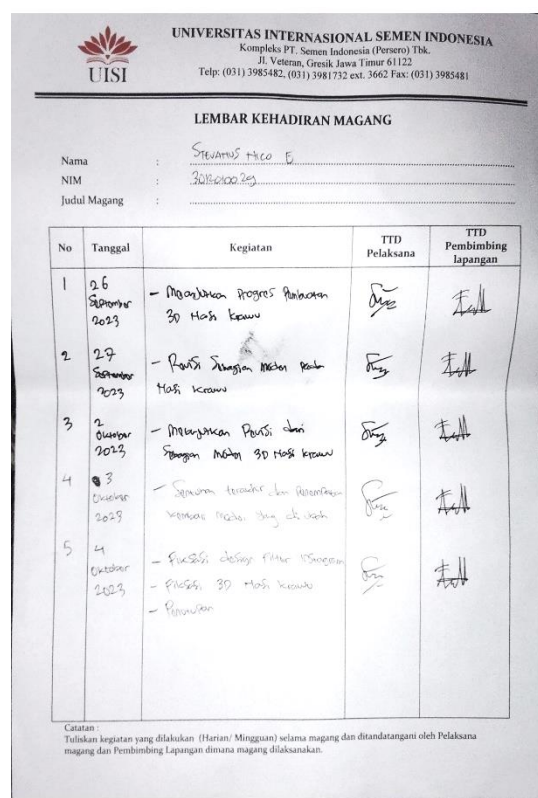 UISI
UNIVERSITAS INTERNASIONAL SEMEN INDONESIA
Kompleks PT. Semen Indonesia (Persero) Tbk.
Jl. Veteran, Gresik Jawa Timur 61122
Telp: (031) 3985482, (031) 3981732 ext. 3662 Fax: (031) 3985481
LEMBAR KEHADIRAN MAGANG
Nama : Stevanus Nico E
NIM :
Judul Magang :
No Tanggal Kegiatan TTD Pelaksana TTD Pembimbing lapangan
1 26 September 2023
- Melanjutkan Progres Pembuatan
3D Nasi Krawu
2 27 September 2023
- Revisi Sebagian model pada
Nasi Krawu
3 2 Oktober 2023
- Melanjutkan Revisi dari
Sebagian model 3D Nasi Krawu
4 3 Oktober 2023
- Sentuhan terakhir dan
kembali model yang di ubah
5 4 Oktober 2023
- design Filter Instagram
- 3D Nasi Krawu
- Penutupan
Catatan :
Tuliskan kegiatan yang dilakukan (Harian/ Mingguan) selama magang dan ditandatangani oleh Pelaksana
magang dan Pembimbing Lapangan dimana magang dilaksanakan.